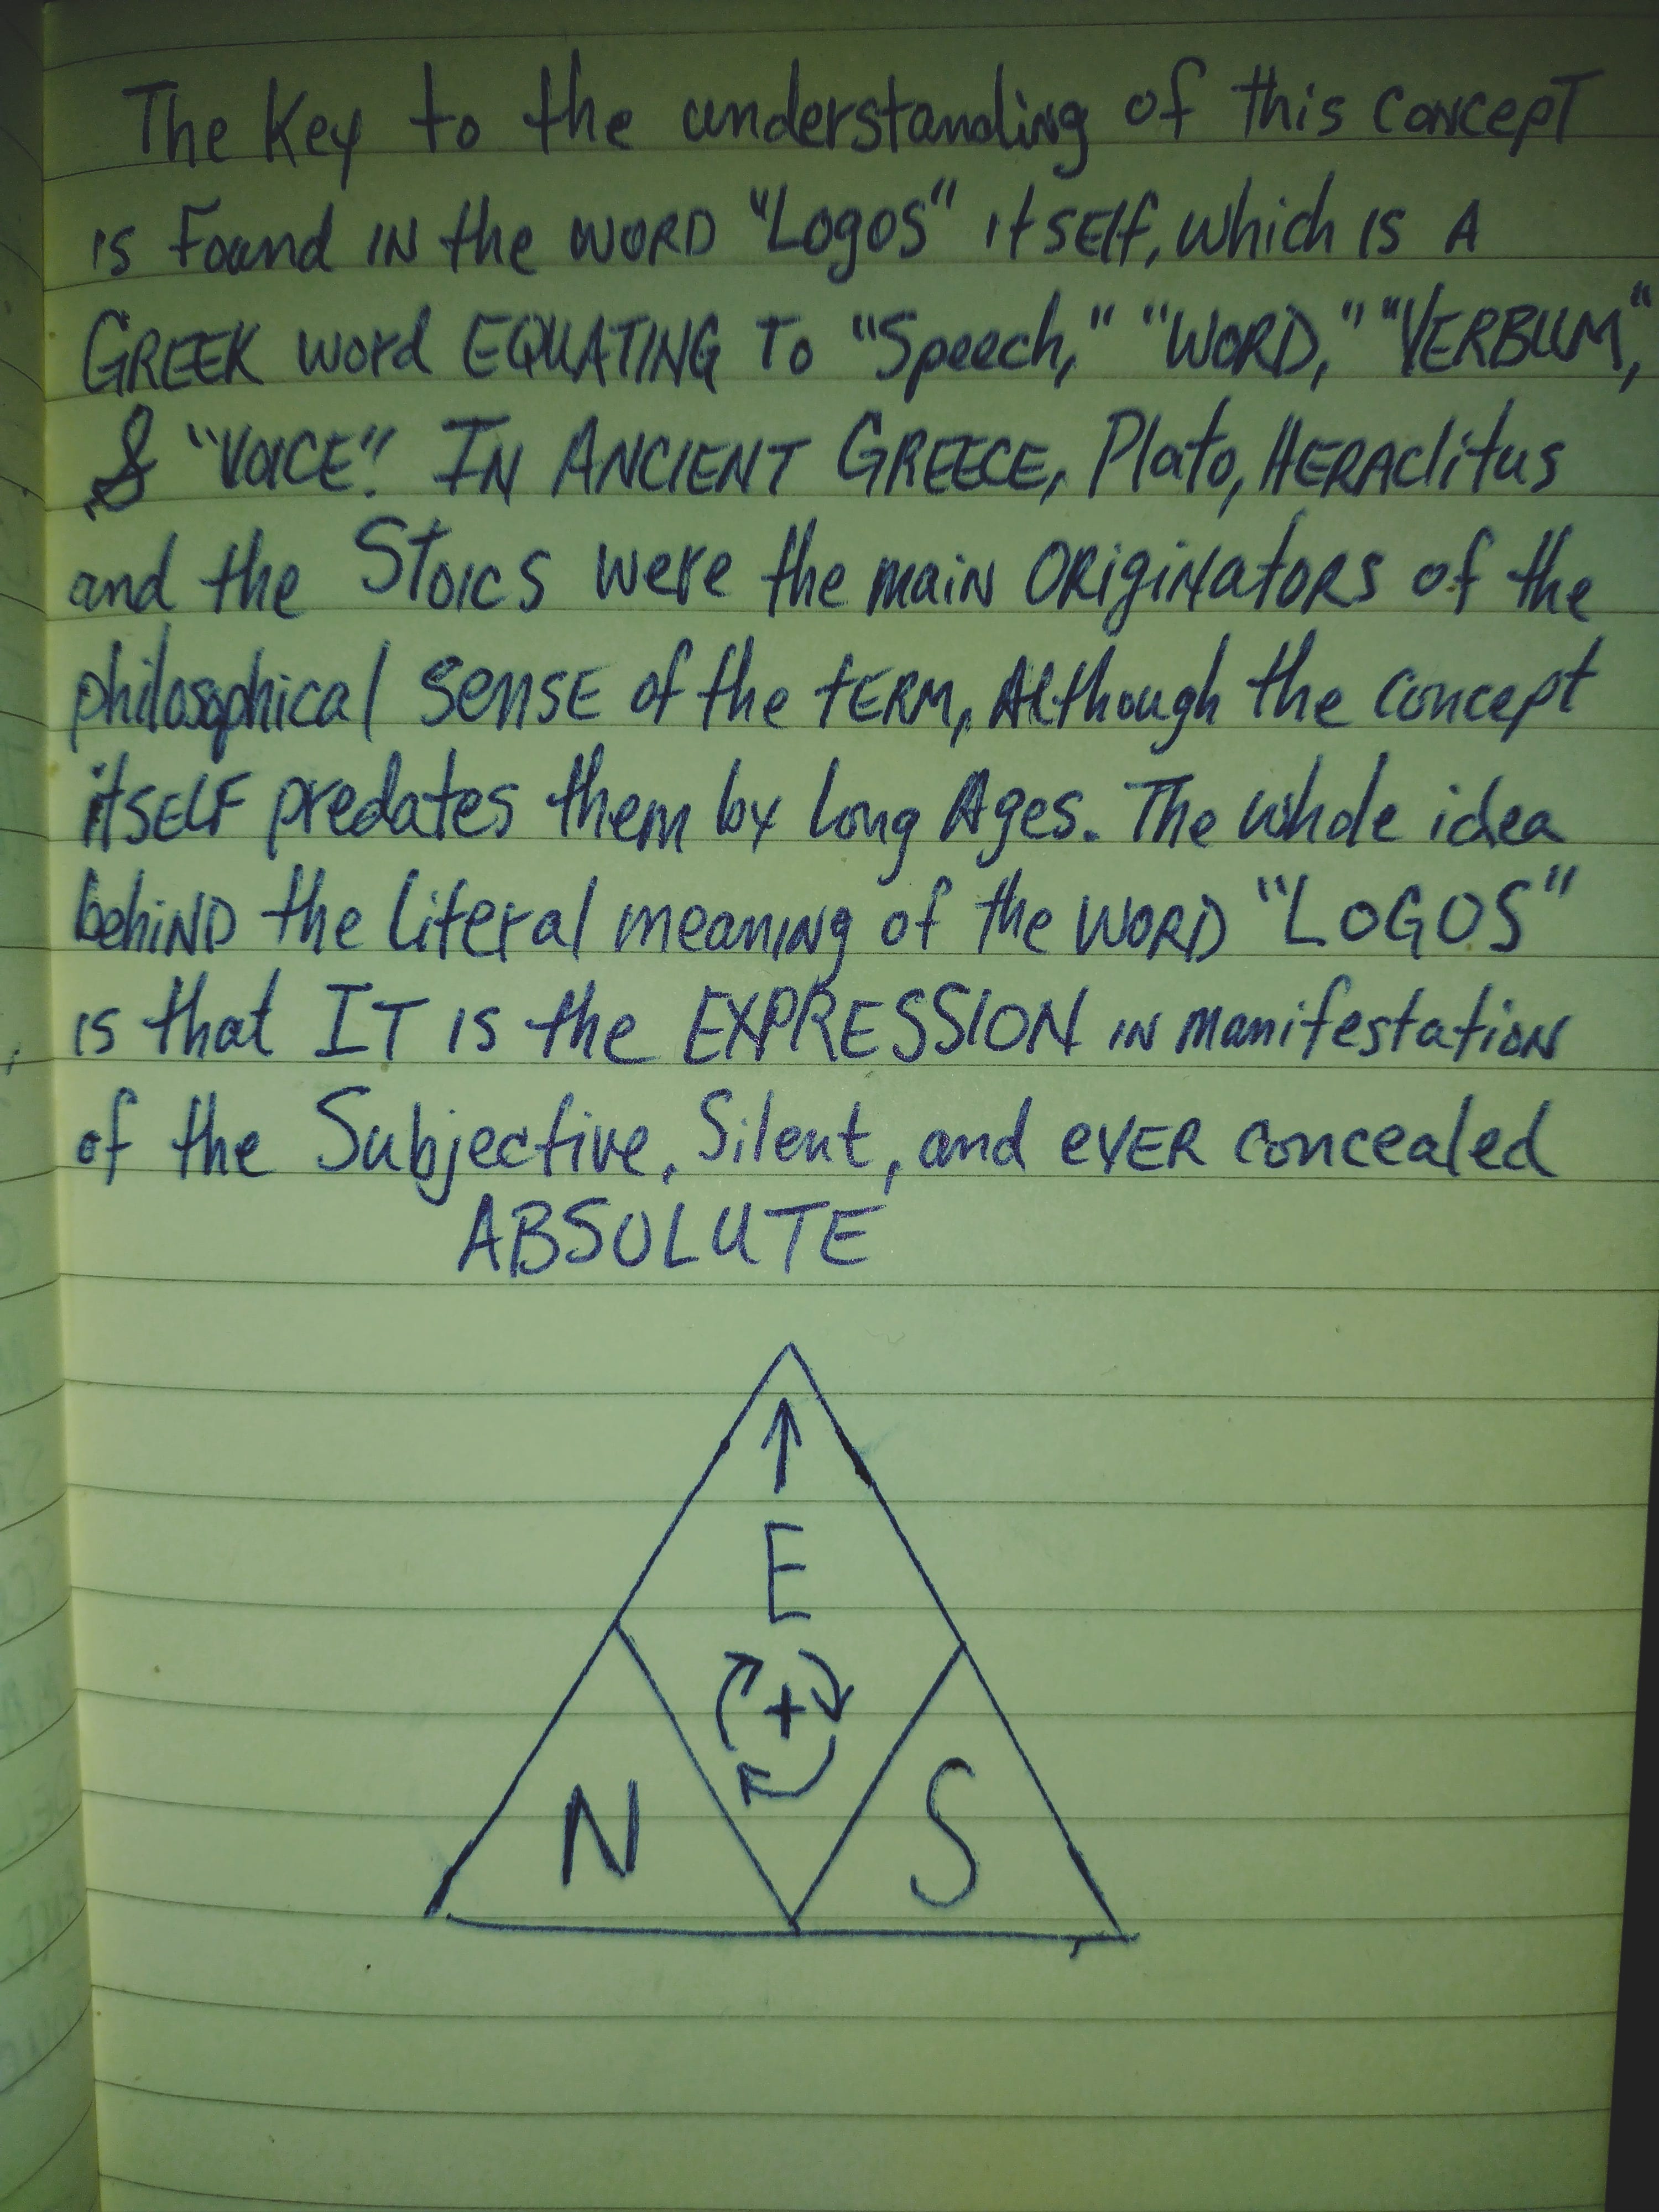 The Key to the understanding of this concept
is Found IN the WORD "Logos" itSElf, which is A
GREEK word EQUATING To "Speech," "WORD," "VERBUM,"
& "VOICE". IN ANCIENT GREECE, Plato, HERAClitus
and the Stoics were the main ORiginatoRs of the
philosophical sense of the tERM, Although the concept
itSELF predates them by Long Ages. The whole idea
behiND the literal meaning of the WORD "LOGOS"
is that IT is the EXPRESSION IN manifestation
of the Subjective, Silent, and evER concealed
ABSOLUTE
↑
E
+
N S